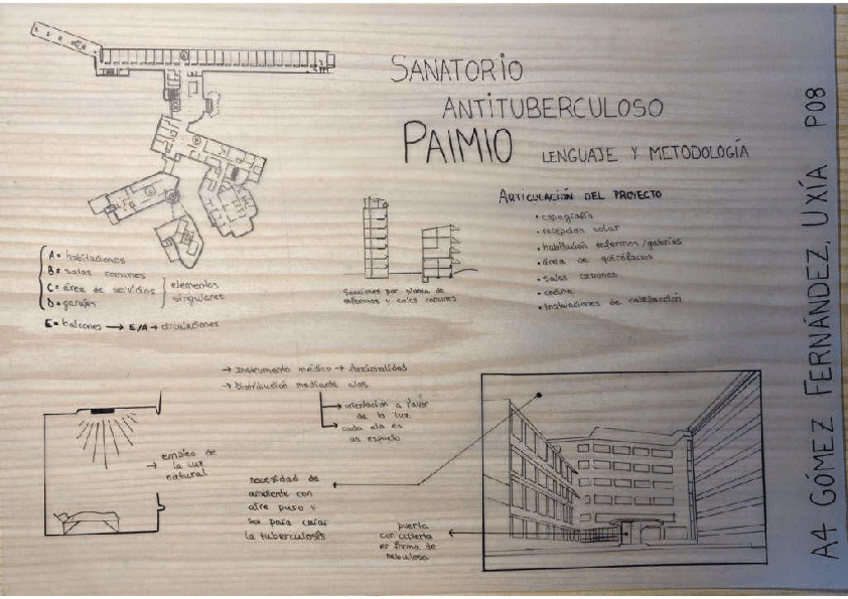 SANATORIO
ANTITUBERCULOSO
PAIMIO LENGUAJE Y METODOLOGÍA
ARTICULACIÓN DEL PROYECTO
• topografía
• recepción solar
• habitación enfermos/galerías
• área de quirófanos
• salas comunes
• cocina
• instalaciones de calefacción
A= habitaciones
B= salas comunes
C= área de servicios
D= garajes
elementos
singulares
E= balcones → E/A → circulaciones
Secciones por planta de
enfermos y salas comunes
→ Instrumento médico → Racionalidad
→ Distribución mediante alas
orientación a favor
de la luz
cada ala es
un espacio
→ empleo de
la luz
natural
necesidad de
ambiente con
aire puro y
sol para curar
la tuberculosis
puerta
con cubierta
en forma de
nebulosa
A4 GÓMEZ FERNÁNDEZ, UXÍA P08